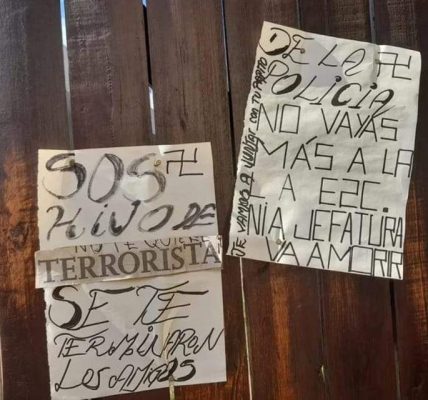 SOS 卐
HIJO DE
NO TE QUIERE
TERRORISTA
SE TE
TERMINARON
LOS AMIGOS
DE LA 卐
POLICIA
NO VAYAS
MAS A LA
E2C.
NIA JEFATURA
VA A MORIR
TE VAMOS A JUNTAR CON TU PAPITO